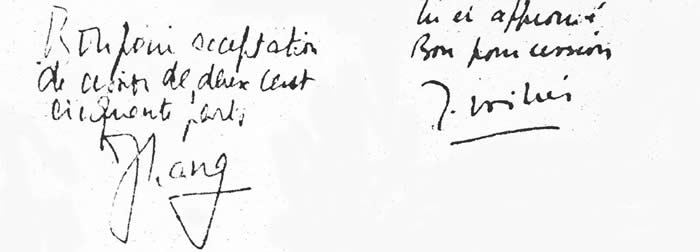 Bon pour acceptation
de cession de deux cent
cinquante parts
Lu et approuvé
Bon pour cession